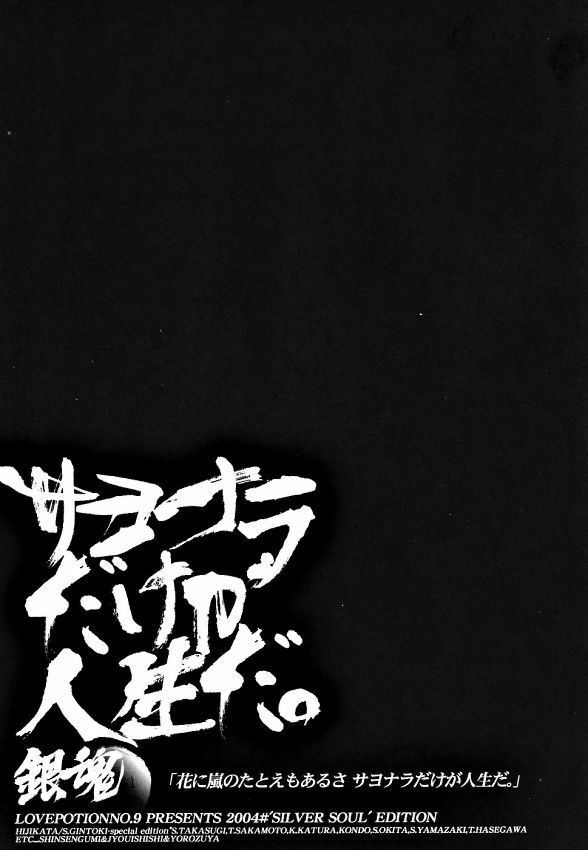 サヨーナラ
だけが
人生だ。
銀魂
「花に嵐のたとえもあるさ サヨナラだけが人生だ。」
LOVEPOTIONNO.9 PRESENTS 2004#'SILVER SOUL' EDITION
HIJIKATA/S.GINTOKI-special edition'S.TAKASUGI,T.SAKAMOTO,K.KATURA,KONDO,S.OKITA,S.YAMAZAKI,T.HASEGAWA
ETC...SHINSENGUMI&JYOUISHISHI&YOROZUYA